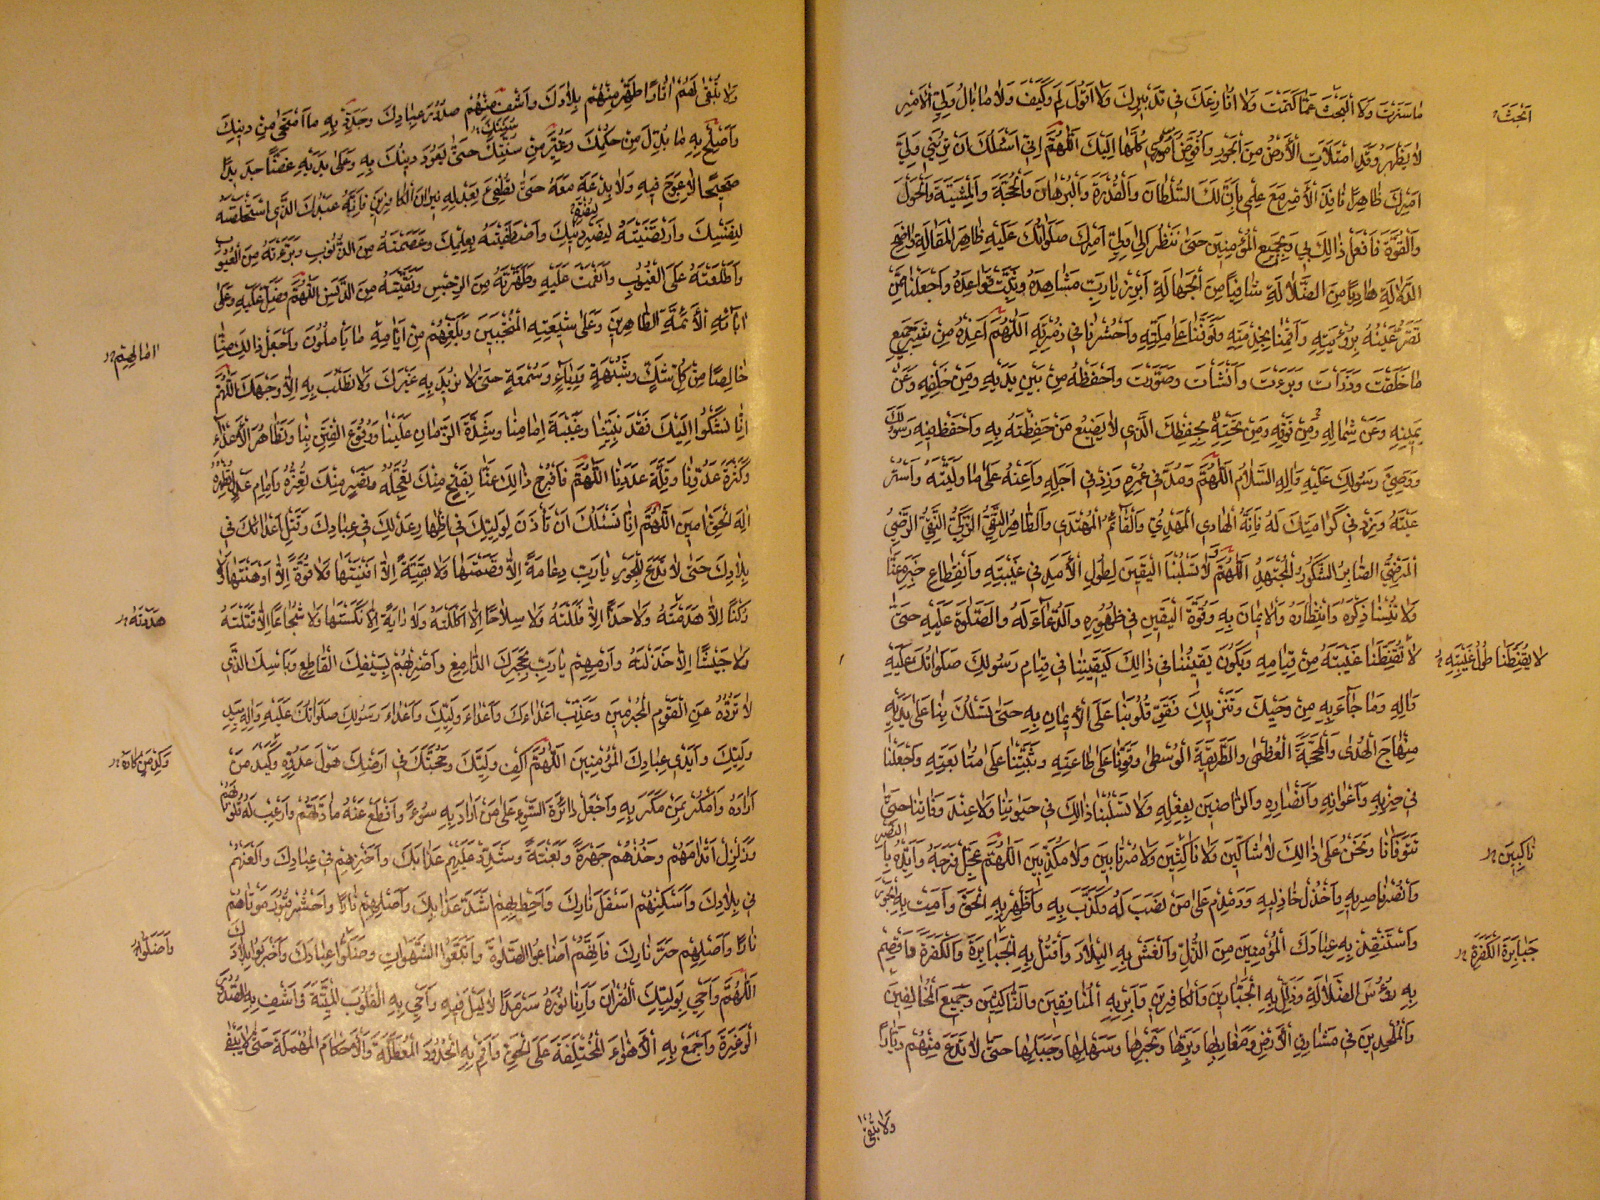 ما سترت ولا البحث عما كتمت ولا انازعك في تدبيرك ولا اقول لم وكيف ولا ما بال ولي الامر
ابحث
لا يظهر وقد امتلات الارض من الجور وافوض اموري كلها اليك اللهم اني اسئلك ان تريني ولي
امرك ظاهرا نافذ الامر مع علمي بان لك السلطان والقدرة والبرهان والحجة والمشية والحول
والقوة فافعل ذالك بي وبجميع المؤمنين حتى ننظر الى وليك صلواتك عليه ظاهر المقالة واضح
الدلالة هاديا من الضلالة شافيا من الجهالة ابرز يا رب مشاهده وثبت قواعده واجعلنا ممن
تقر عينه برؤيته واقمنا بخدمته وتوفنا على ملته واحشرنا في زمرته اللهم اعذه من شر جميع
ما خلقت وذرات وبرءت وانشات وصورت واحفظه من بين يديه ومن خلفه وعن
يمينه وعن شماله ومن فوقه ومن تحته بحفظك الذي لا يضيع من حفظته به واحفظ فيه رسولك
ووصي رسولك عليه واله السلام اللهم ومد في عمره وزد في اجله واعنه على ما وليته واستر
عيته وزد في كرامتك له فانه الهادي المهدي والقائم المهتدي والطاهر التقي الزكي النقي الرضي
المرضي الصابر الشكور المجتهد اللهم لا تسلبنا اليقين لطول الامد في غيبته وانقطاع خبره عنا
ولا تنسنا ذكره وانتظاره والايمان به وقوة اليقين في ظهوره والدعاء له والصلوة عليه حتى
لا تقنطنا غيبته من قيامه ويكون يقيننا في ذالك كيقيننا في قيام رسولك صلواتك عليه
لا يقنطنا طول غيبته
واله وما جاء به من وحيك وتنزيلك فقو قلوبنا على الايمان به حتى تسلك بنا على يديه
منهاج الهدى والمحجة العظمى والطريقة الوسطى وقونا على طاعته وثبتنا على متابعته واجعلنا
في حزبه واعوانه وانصاره والراضين بفعله ولا تسلبنا ذالك في حيوتنا ولا عند وفاتنا حتى
تتوفانا ونحن على ذالك لا شاكين ولا ناكثين ولا مرتابين ولا مكذبين اللهم عجل فرجه وايده بالنصر
ناكبين
وانصر ناصريه واخذل خاذليه ودمدم على من نصب له وكذب به واظهر به الحق وامت به الجور
واستنقذ به عبادك المؤمنين من الذل وانعش به البلاد واقتل به الجبابرة والكفرة واقصم
جبابرة الكفرة
به رؤس الضلالة وذلل به الجبارين والكافرين وابر به المنافقين والناكثين وجميع المخالفين
والملحدين في مشارق الارض ومغاربها وبرها وبحرها وسهلها وجبلها حتى لا تدع منهم ديارا
ولا تبقى
ولا تبقى لهم اثارا طهر منهم بلادك واشف منهم صدور عبادك وجدد به ما امتحى من دينك
واصلح به ما بدل من حكمك وغير من سنتك حتى يعود دينك به وعلى يديه غضا جديدا
صحيحا لا عوج فيه ولا بدعة معه حتى تطفئ بعدله نيران الكافرين فانه عبدك الذي استخلصته
لنفسك وارتضيته لنصر دينك واصطفيته بعلمك وعصمته من الذنوب وبرءته من العيوب
واطلعته على الغيوب وانعمت عليه وطهرته من الرجس ونقيته من الدنس اللهم وصل عليه وعلى
ابائه الائمة الطاهرين وعلى شيعته المنتجبين وبلغهم من ايامه ما يأملون واجعل ذالك منا
امالهم
خالصا من كل شك وشبهة ورياء وسمعة حتى لا نريد به غيرك ولا نطلب به الا وجهك اللهم
انا نشكوا اليك فقد نبينا وغيبة امامنا وشدة الزمان علينا ووقوع الفتن بنا وتظاهر الاعداء
وكثرة عدونا وقلة عددنا اللهم فافرج ذالك عنا بفتح منك تعجله ونصر منك تعزه وامام عدل تظهره
اله الحق امين اللهم انا نسئلك ان تأذن لوليك في اظهار عدلك في عبادك وقتل اعدائك في
بلادك حتى لا تدع للجور يا رب دعامة الا قصمتها ولا بقية الا افنيتها ولا قوة الا اوهنتها ولا
ركنا الا هدمته ولا حدا الا فللته ولا سلاحا الا اكللته ولا راية الا نكستها ولا شجاعا الا قتلته
هددته
ولا جيشا الا خذلته وارمهم يا رب بحجرك الدامغ واضربهم بسيفك القاطع وباسك الذي
لا ترده عن القوم المجرمين وعذب اعداءك واعداء وليك واعداء رسولك صلواتك عليه واله بيد
وليك وايدي عبادك المؤمنين اللهم اكف وليك وحجتك في ارضك هول عدوه وكيد من
وكد من كاده
اراده وامكر بمن مكر به واجعل دائرة السوء على من اراد به سوءا واقطع عنه مادتهم وارعب له قلوبهم
وزلزل اقدامهم وخذهم جهرة وبغتة وشدد عليهم عذابك واخزهم في عبادك والعنهم
في بلادك واسكنهم اسفل نارك واحط بهم اشد عذابك واصلهم نارا واحش قبور موتاهم
نارا واصلهم حر نارك فانهم اضاعوا الصلوة واتبعوا الشهوات وضلوا عبادك واخربوا بلادك
واضلوا
اللهم واحي بوليك القران وارنا نوره سرمدا لا ليل فيه واحي به القلوب الميتة واشف به الصدور
الوغرة واجمع به الاهواء المختلفة على الحق واقم به الحدود المعطلة والاحكام المهملة حتى لا يبقى